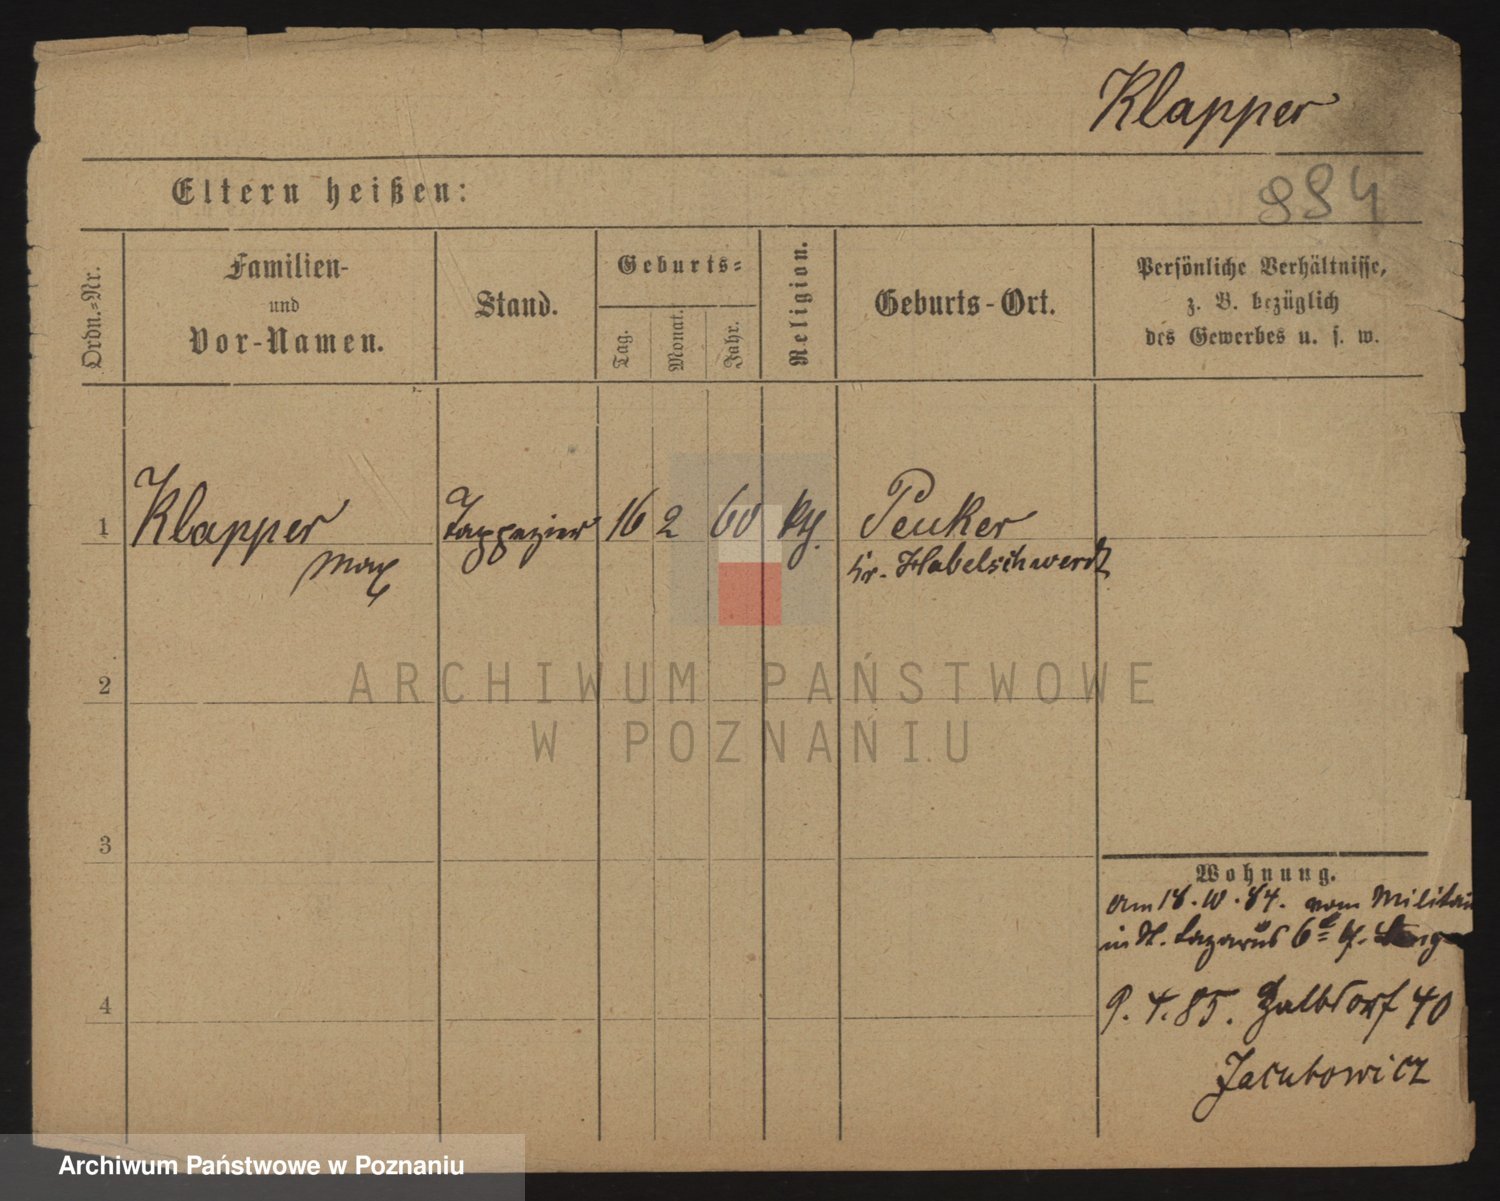 Klapper
Eltern heißen:
994
Ordn.-Nr.
Familien-
und
Vor-Namen.
Stand.
Geburts-
Tag.
Monat.
Jahr.
Religion.
Geburts-Ort.
Persönliche Verhältnisse,
z. B. bezüglich
des Gewerbes u. s. w.
1 Klapper Tappezier 16 2 60 kth. Peuker
Max Kr. Habelschwerdt
2
ARCHIWUM PAŃSTWOWE
W POZNANIU
3
Wohnung.
am 18. 10. 84. vom Militair
in St. Lazarus 6
4
9. 4. 85. Halbdorf 40
Jacubowicz
Archiwum Państwowe w Poznaniu